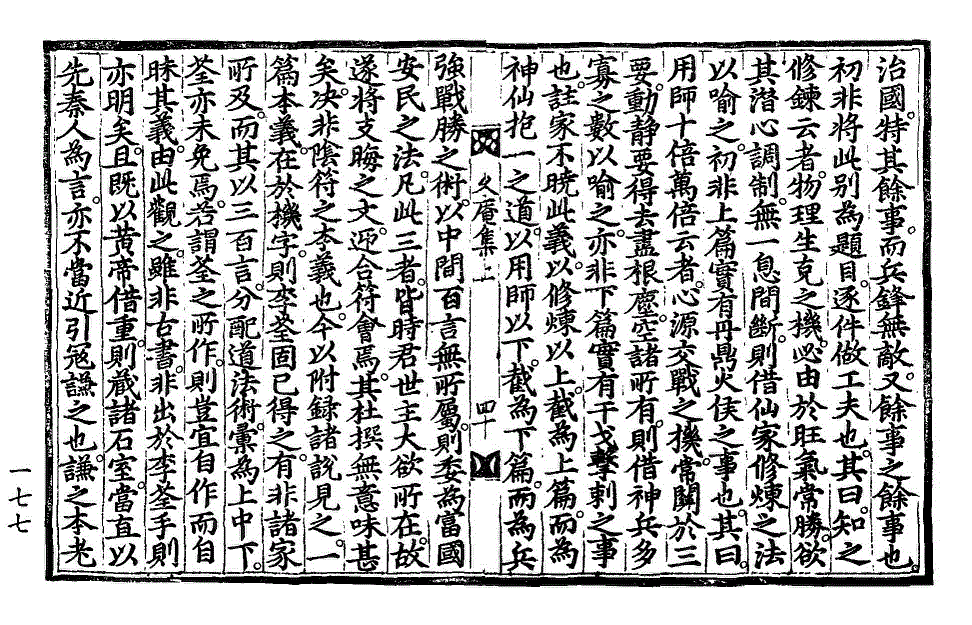 治國。特其餘事。而兵鋒無敵。又餘事之餘事也。
初非將此別為題目。逐件做工夫也。其曰。知之
修鍊云者。物理生克之機。必由於旺氣常勝。欲
其潛心調制。無一息間斷。則借仙家修煉之法
以喻之。初非上篇實有丹鼎火候之事也。其曰
用師十倍萬倍云者。心源交戰之機。常關於三
要。動靜要得去盡根塵。空諸所有。則借神兵多
寡之數以喻之。亦非下篇實有干戈擊刺之事
也。註家不曉此義。以修煉以上。截為上篇。而為
神仙抱一之道。以用師以下。截為下篇。而為兵
文庵集上 四十
強戰勝之術。以中間百言無所屬。則委為富國
安民之法。凡此三者。皆時君世主大欲所在。故
遂將支晦之文。迎合符會焉。其杜撰無意味甚
矣。决非陰符之本義也。今以附録諸說見之。一
篇本義。在於機字。則李筌固已得之。有非諸家
所及。而其以三百言。分配道法術。彙為上中下。
筌亦未免焉。若謂筌之所作。則豈宜自作而自
昧其義。由此觀之。雖非古書。非出於李筌手則
亦明矣。且既以黃帝借重。則藏諸石室。當直以
先秦人為言。亦不當近引冦謙之也。謙之本老
一七七